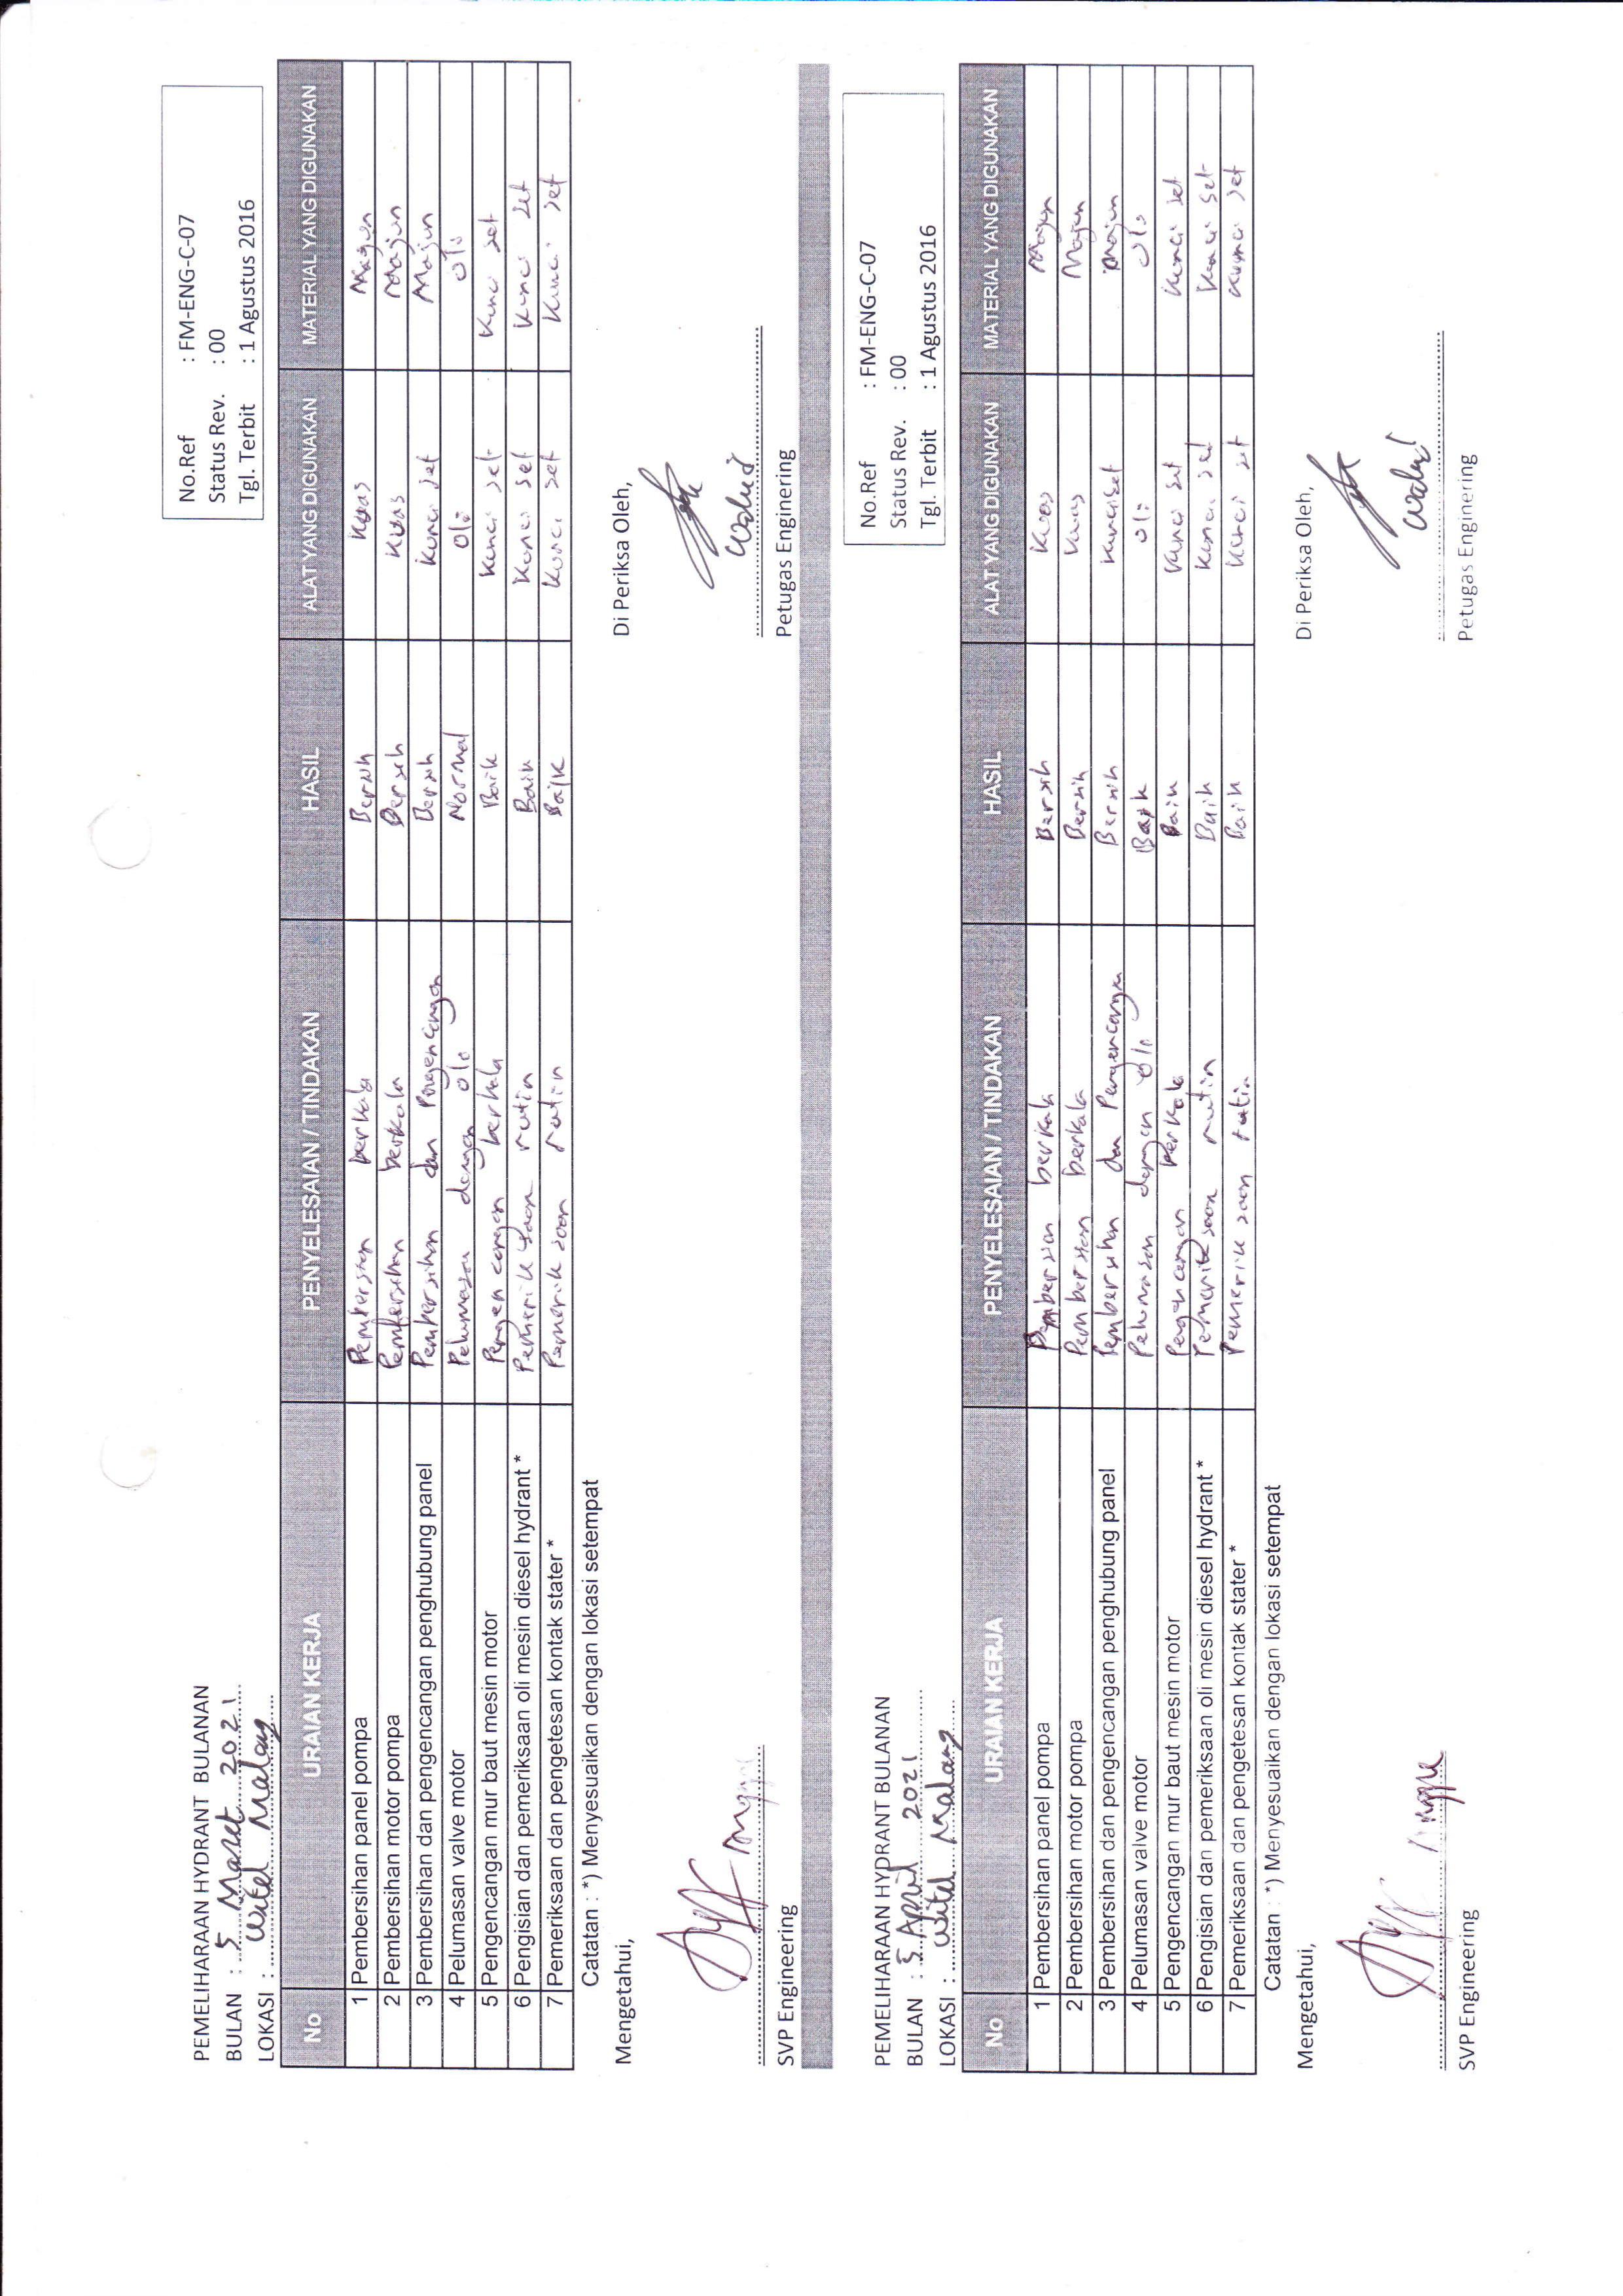 No.Ref : FM-ENG-C-07
PEMELIHARAAN HYDRANT BULANAN
Status Rev. : 00
BULAN : 5 Maret 2021
Tgl. Terbit : 1 Agustus 2016
LOKASI : Witel Malang
No URAIAN KERJA PENYELESAIAN / TINDAKAN HASIL ALAT YANG DIGUNAKAN MATERIAL YANG DIGUNAKAN
1 Pembersihan panel pompa Pembersian berkala Bersih Kuas Majun
2 Pembersihan motor pompa Pembersihan berkala Bersih Kuas Majun
3 Pembersihan dan pengencangan penghubung panel Pembersihan dan Pengencangan Bersih Kunci set Majun
4 Pelumasan valve motor Pelumasan dengan oli Normal Oli Oli
5 Pengencangan mur baut mesin motor Pengencangan berkala Baik Kunci set Kunci set
6 Pengisian dan pemeriksaan oli mesin diesel hydrant * Pemeriksaan rutin Baik Kunci set Kunci set
7 Pemeriksaan dan pengetesan kontak stater * Pemeriksaan rutin Baik Kunci set Kunci set
Catatan : *) Menyesuaikan dengan lokasi setempat
Mengetahui, Di Periksa Oleh,
SVP Engineering Petugas Enginering
No.Ref : FM-ENG-C-07
PEMELIHARAAN HYDRANT BULANAN
Status Rev. : 00
BULAN : 5 April 2021
Tgl. Terbit : 1 Agustus 2016
LOKASI : Witel Malang
No URAIAN KERJA PENYELESAIAN / TINDAKAN HASIL ALAT YANG DIGUNAKAN MATERIAL YANG DIGUNAKAN
1 Pembersihan panel pompa Pembersian berkala Bersih Kuas Majun
2 Pembersihan motor pompa Pembersian berkala Bersih Kuas Majun
3 Pembersihan dan pengencangan penghubung panel Pembersihan dan Pengencangan Bersih Kunci set Majun
4 Pelumasan valve motor Pelumasan dengan oli Baik Oli Oli
5 Pengencangan mur baut mesin motor Pengencangan berkala Baik Kunci set Kunci set
6 Pengisian dan pemeriksaan oli mesin diesel hydrant * Pemeriksaan rutin Baik Kunci set Kunci set
7 Pemeriksaan dan pengetesan kontak stater * Pemeriksaan rutin Baik Kunci set Kunci set
Catatan : *) Menyesuaikan dengan lokasi setempat
Mengetahui, Di Periksa Oleh,
SVP Engineering Petugas Enginering